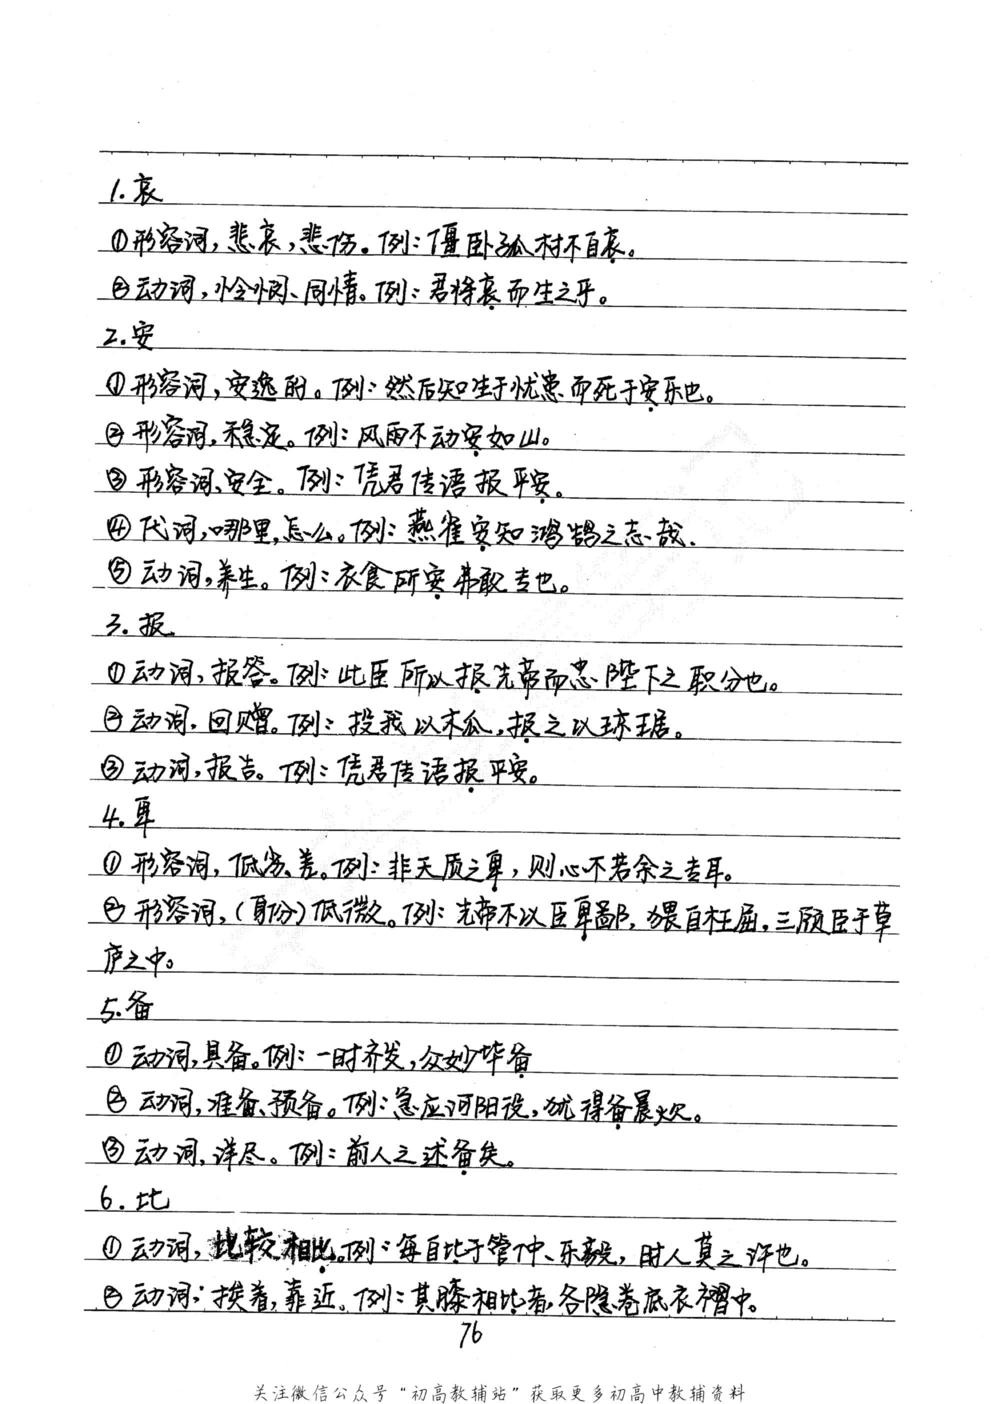 1.哀
①形容词，悲哀，悲伤。例：僵卧孤村不自哀。
②动词，怜悯、同情。例：君将哀而生之乎。
2.安
①形容词，安逸的。例：然后知生于忧患而死于安乐也。
②形容词，稳定。例：风雨不动安如山。
③形容词、安全。例：凭君传语报平安。
④代词，哪里，怎么。例：燕雀安知鸿鹄之志哉.
⑤动词，养生。例：衣食所安弗敢专也。
3.报
①动词，报答。例：此臣所以报先帝而忠陛下之职分也。
②动词，回赠。例：投我以木瓜，报之以琼琚。
③动词，报告。例：凭君传语报平安。
4.卑
①形容词，低劣、差。例：非天质之卑，则心不若余之专耳。
②形容词，（身份）低微。例：先帝不以臣卑鄙，猥自枉屈，三顾臣于草
庐之中。
5.备
①动词，具备。例：一时齐发，众妙毕备
②动词，准备、预备。例：急应河阳役，犹得备晨炊。
③动词，详尽。例：前人之述备矣。
6.比
①动词，比较相比。例：每自比于管仲、乐毅，时人莫之许也。
②动词：挨着，靠近。例：其膝相比者，各隐卷底衣褶中。
76
关注微信公众号“初高教辅站”获取更多初高中教辅资料